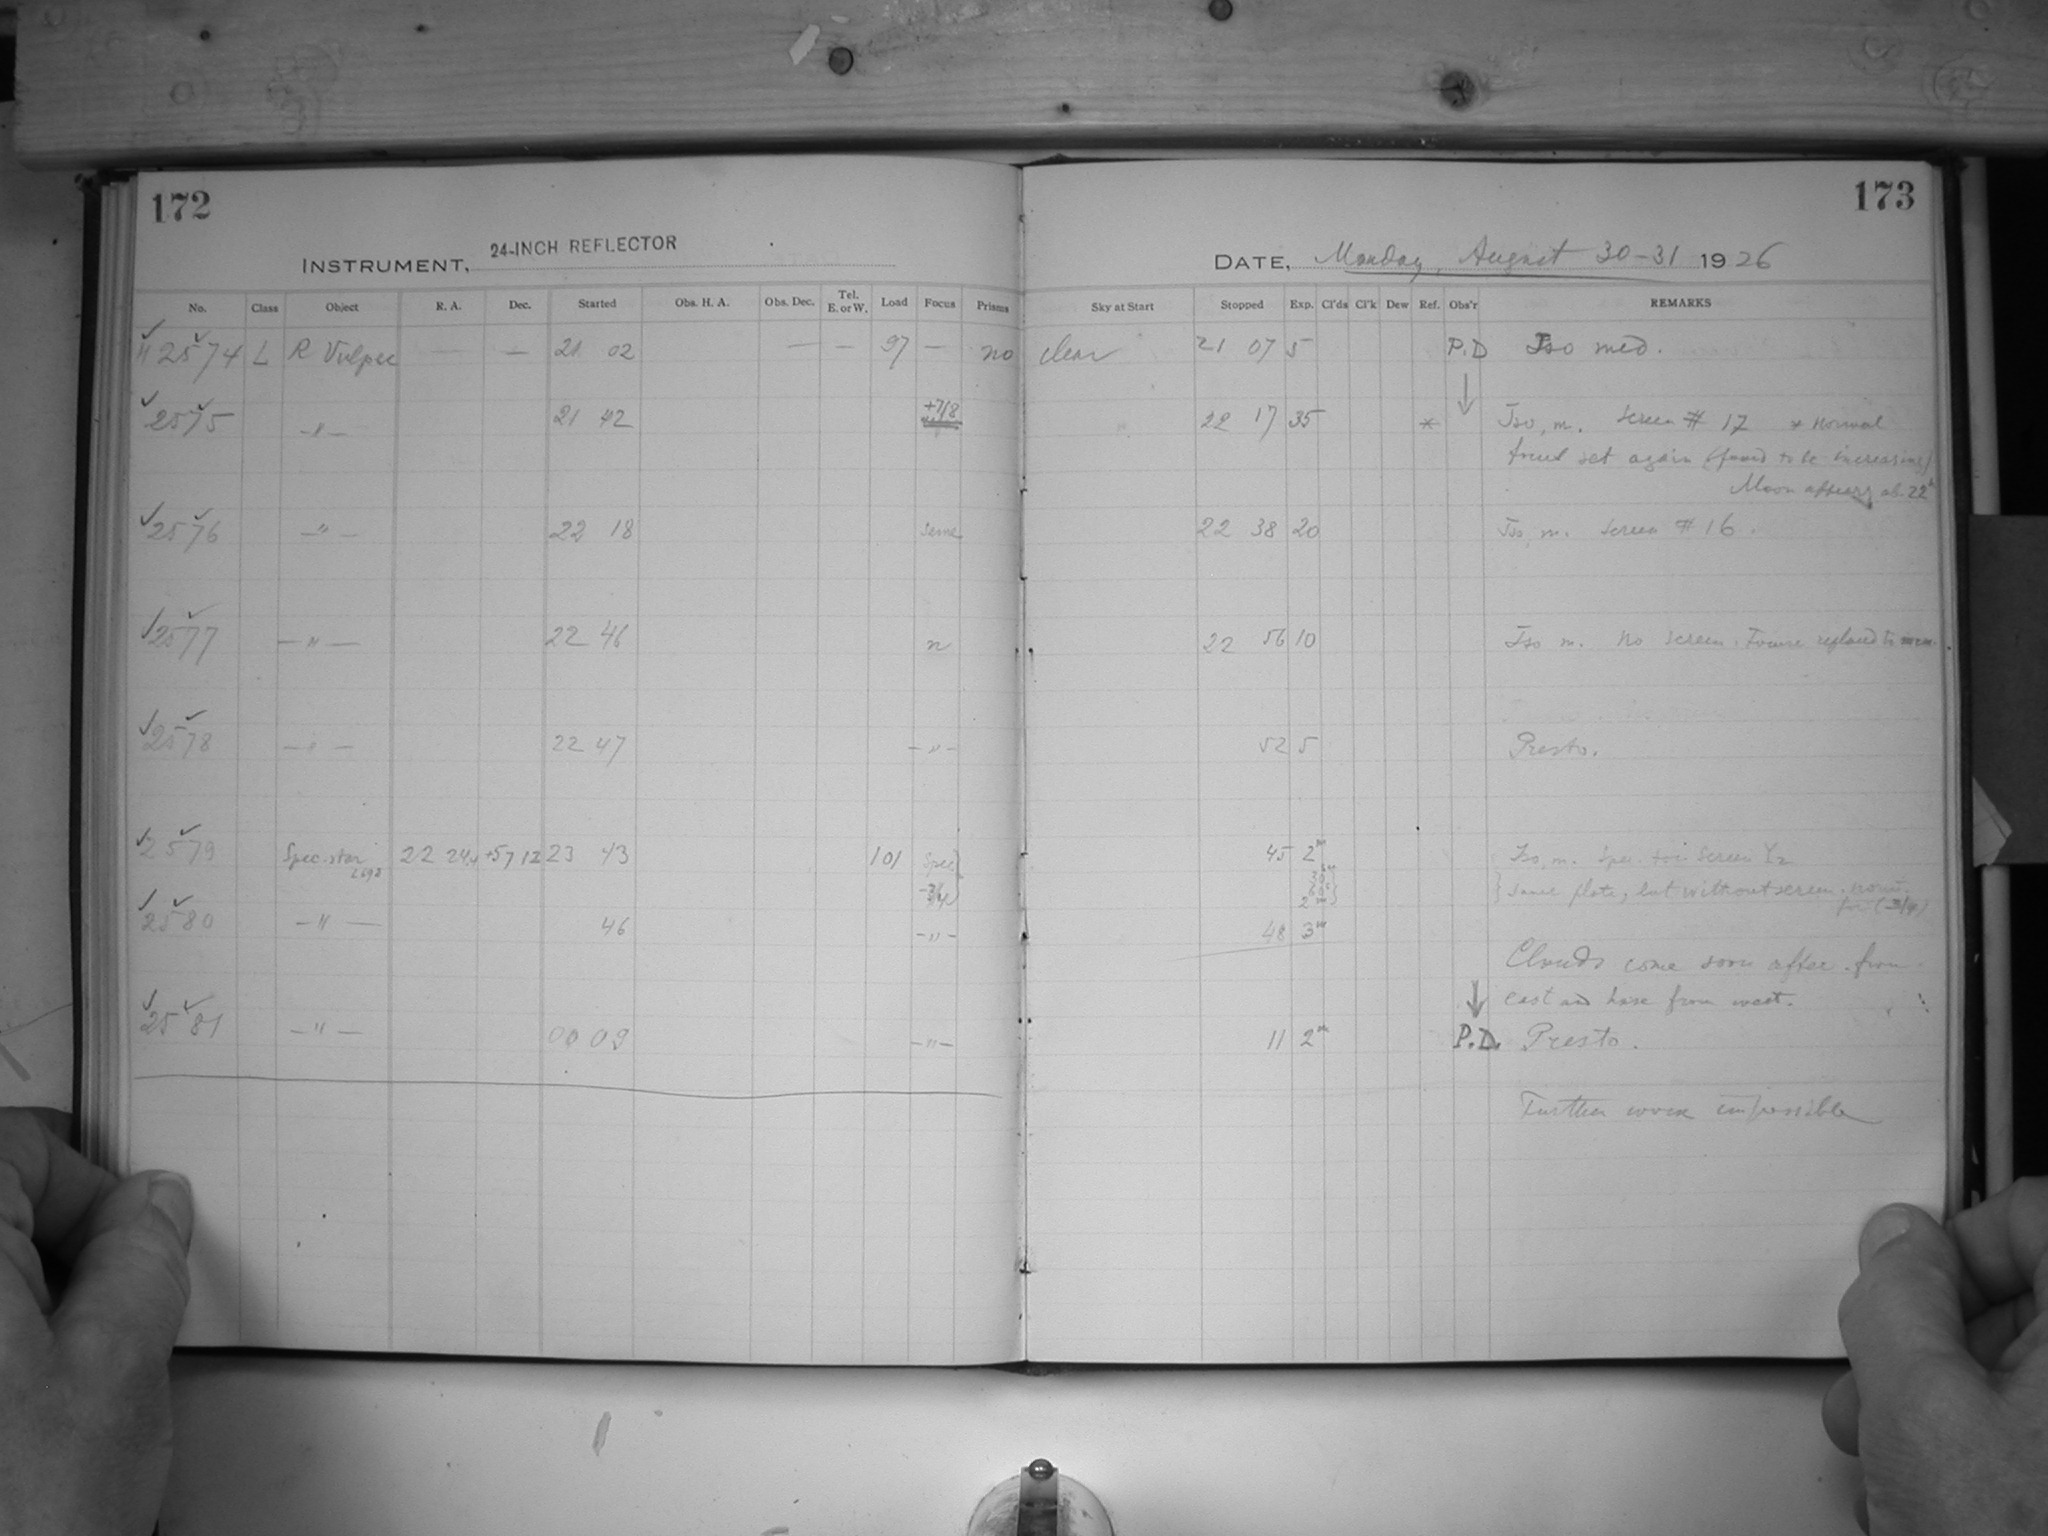 172
173
INSTRUMENT, 24-INCH REFLECTOR
DATE, Monday, August 30-31 1926
No. Class Object R. A. Dec. Started Obs. H. A. Obs. Dec. Tel. E. or W. Load Focus Prisms Sky at Start Stopped Exp. Cl'ds Cl'k Dew Ref. Obs'r REMARKS
H 2574 L R Vulpec — — 21 02 — — 97 — no clear 21 07 5 P.D Iso med.
2575 —"— 21 42 +7/8 22 17 35 * Iso, m. Screen # 17 * Normal
focus set again (found to be increasing)
Moon appears ab. 22h
2576 —"— 22 18 same 22 38 20 Iso, m. screen # 16.
2577 —"— 22 46 " 22 56 10 Iso m. No screen.
2578 —"— 22 47 —"— 52 5 Presto.
2579 Spec. star 22 24,4 +57 12 23 43 101 45 2m Iso, m. screen
-3/4 same plate, but without screen.
2580 —"— 46 —"— 48 3m
Clouds come soon after from
east and haze from west.
2581 —"— 00 09 —"— 11 2m P.D. Presto.
Further work impossible